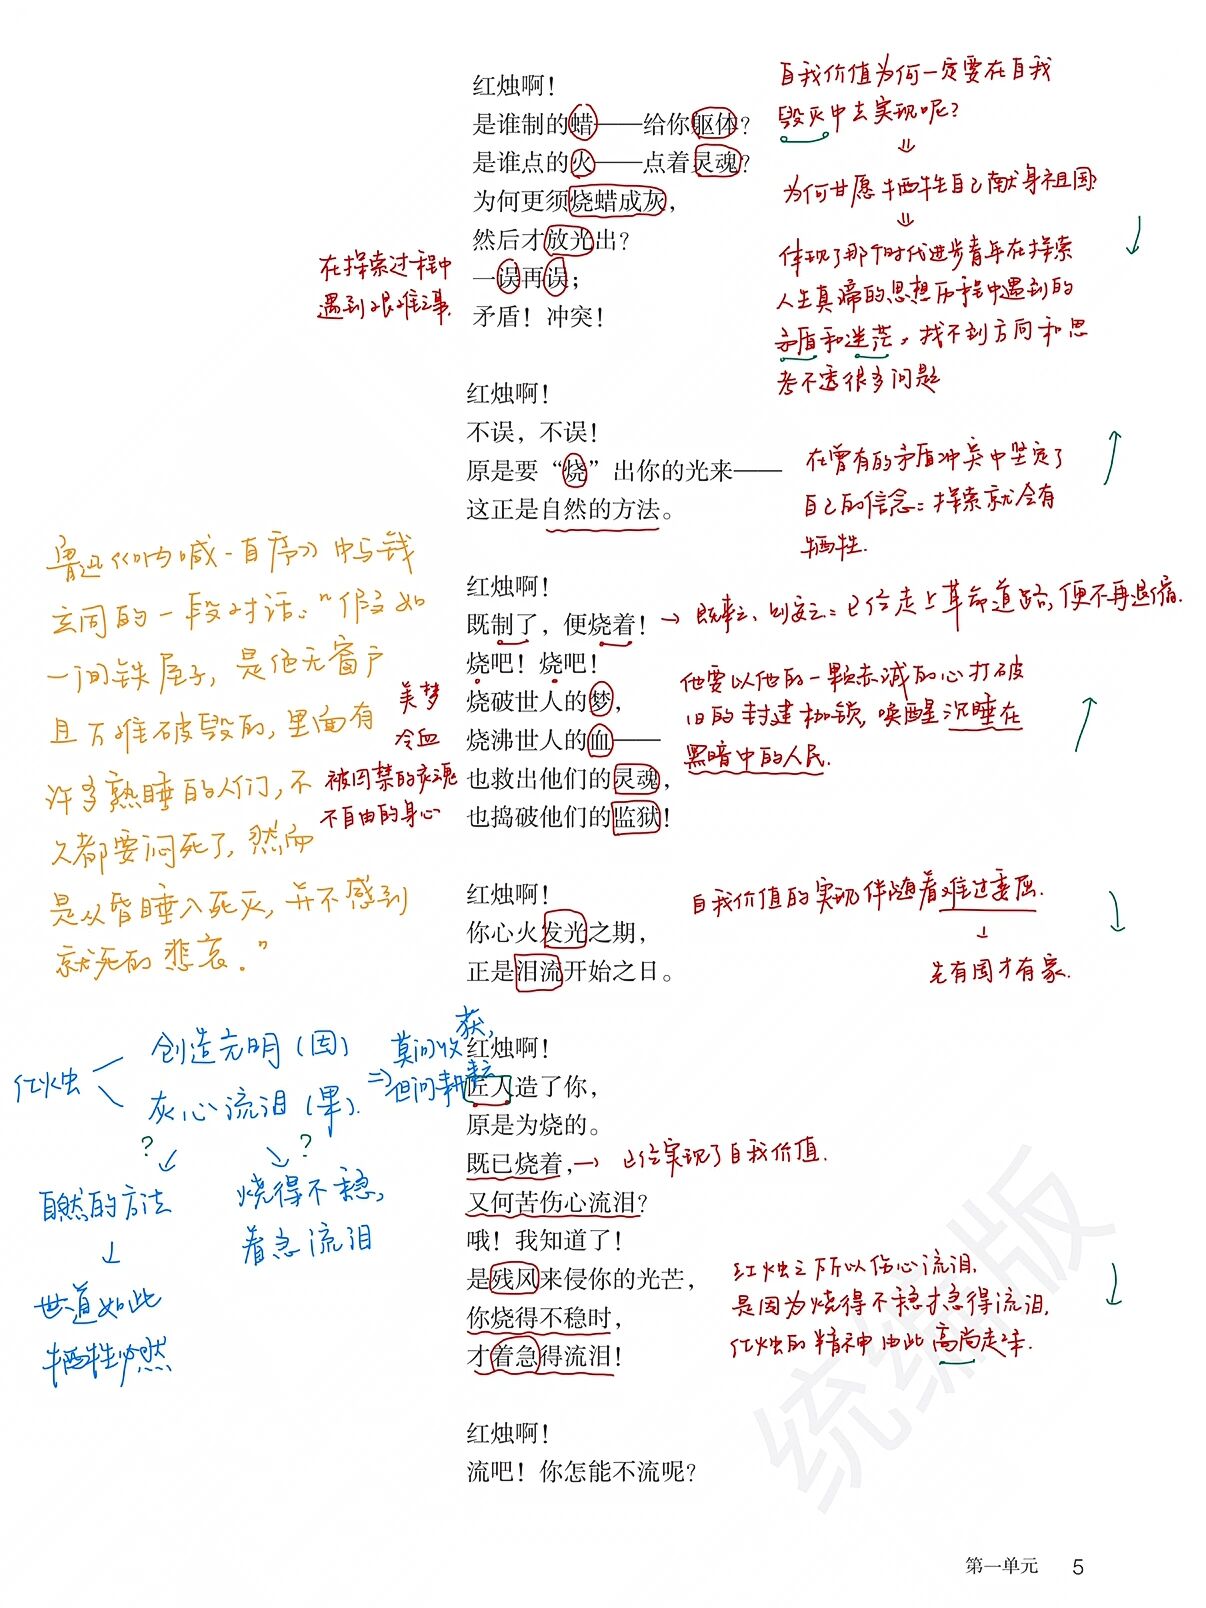 红烛啊！
是谁制的蜡——给你躯体？
是谁点的火——点着灵魂？
为何更须烧蜡成灰，
然后才放光出？
一误再误；
矛盾！冲突！
自我价值为何一定要在自我
毁灭中去实现呢？
为何甘愿牺牲自己献身祖国?
体现了那个时代进步青年在探索
人生真谛的思想历程中遇到的
矛盾和迷茫，找不到方向和思
考不透很多问题
在探索过程中
遇到艰难之事.
红烛啊！
不误，不误！
原是要“烧”出你的光来——
这正是自然的方法。
在曾有的矛盾冲突中坚定了
自己的信念：探索就会有
牺牲.
红烛啊！
既制了，便烧着！
→ 既来之、则安之：已经走上革命道路，便不再退缩.
烧吧！烧吧！
烧破世人的梦，
烧沸世人的血——
也救出他们的灵魂，
也捣破他们的监狱！
美梦
冷血
被囚禁的灵魂
不自由的身心
他要以他的一颗赤诚的心打破
旧的封建枷锁，唤醒沉睡在
黑暗中的人民.
鲁迅《呐喊·自序》中与钱
玄同的一段对话：“假如
一间铁屋子，是绝无窗户
且万难破毁的，里面有
许多熟睡的人们，不
久都要闷死了，然而
是从昏睡入死灭，并不感到
就死的悲哀.”
红烛啊！
你心火发光之期，
正是泪流开始之日。
自我价值的实现伴随着难过委屈.
↓
先有国才有家.
红烛啊！
匠人造了你，
原是为烧的。
既已烧着，
→ 已经实现了自我价值.
又何苦伤心流泪？
哦！我知道了！
是残风来侵你的光芒，
你烧得不稳时，
才着急得流泪！
红烛之所以伤心流泪，
是因为烧得不稳才急得流泪，
红烛的精神由此高尚起来.
红烛
创造光明（因）
灰心流泪（果）.
⇒ 莫问收获，
但问耕耘
?
?
自然的方法
↓
世道如此
牺牲必然
烧得不稳，
着急流泪
红烛啊！
流吧！你怎能不流呢？
统编版
第一单元 5